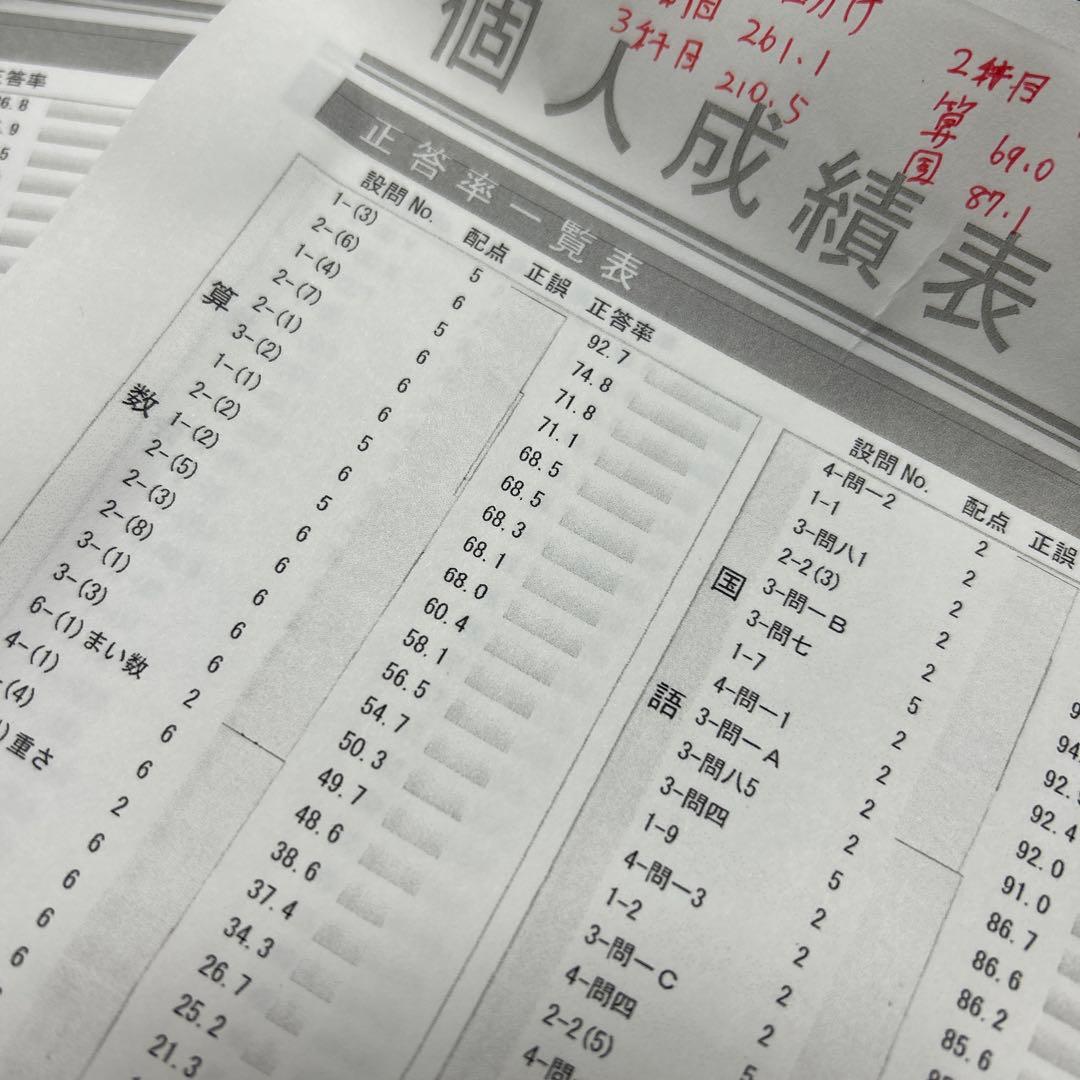 個人成績表
261.1
3番目 210.5
2番目
算 69.0
国 87.1
正答率一覧表
設問No. 配点 正誤 正答率
算数
1-(3) 5 92.7
2-(6) 6 74.8
1-(4) 5 71.8
2-(7) 6 71.1
2-(1) 6 68.5
3-(2) 6 68.5
1-(1) 5 68.3
2-(2) 6 68.1
1-(2) 5 68.0
2-(5) 6 60.4
2-(3) 6 58.1
2-(8) 6 56.5
3-(1) 6 54.7
3-(3) 6 50.3
6-(1)まい数 2 49.7
4-(1) 6 48.6
(4) 6 38.6
重さ 2 37.4
6 34.3
6 26.7
6 25.2
6 21.3
設問No. 配点 正誤
国語
4-問一2 2
1-1 2
3-問八1 2
2-2(3) 2
3-問一B 2
3-問七 5
1-7 2
4-問一1 2
3-問一A 2
3-問八5 2
3-問四 5
1-9 2
4-問一3 2
1-2 2
3-問一C 2
4-問四 5
2-2(5)
4-問
92.4
92.0
91.0
86.7
86.6
86.2
85.6
正答率